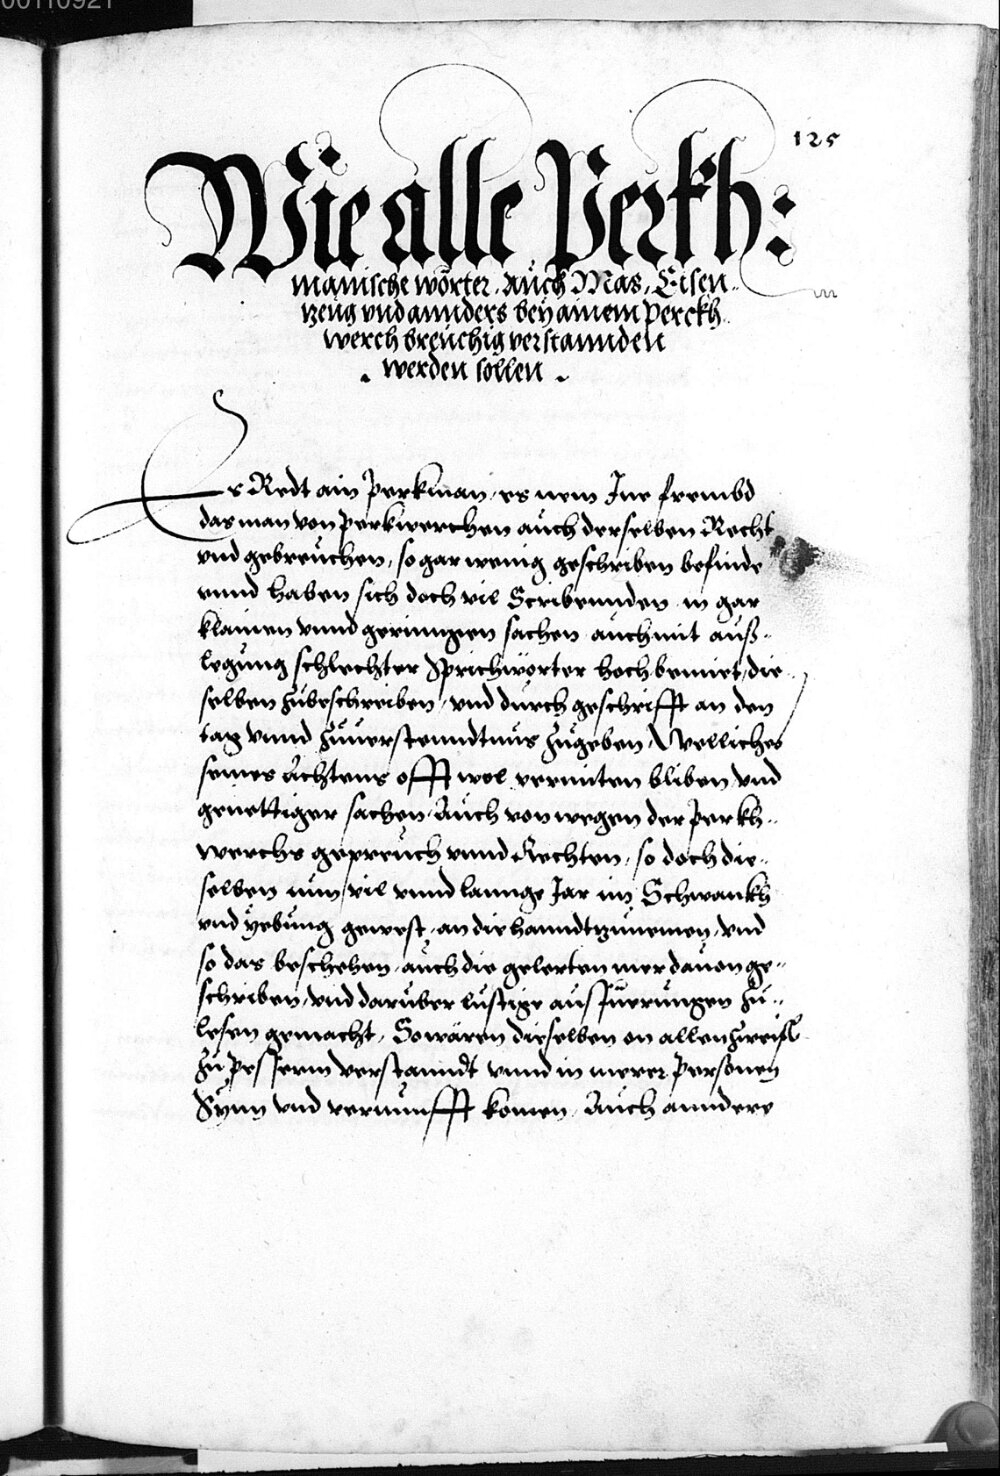 00110921
125
Wie alle Perkh:
manische wörter, auch Mas, Eisen
zeug vnd annders bey ainem Perckh
werch breuchig verstannden
werden sollen
Es Redt ain Perkman, es nem Ine frembd
das man von perkwerchen auch derselben Recht
vnd gebreuchen, so gar wenig geschriben befinde
vnnd haben sich doch vil Scribennden in gar
klainen vnnd geringen sachen auch mit auß-
legung schlechter Sprichwörter hoch bemiet, die
selben zubeschreiben, vnd durch geschrifft an den
tag vnnd zuuerstenndtnus zugeben, Welliches
seines Achtens offt wol vermiten bliben vnd
genettiger sachen, Auch von wegen der Perkh-
werchs gepreuch vnnd Rechten, so doch die-
selben nun vil vnnd lannge Jar im Schwankh
vnd yebung gewest, an die hanndt zunemen, vnd
so das beschehen, auch die gelerten mer dauon ge-
schriben, vnd daruber lustige ausfuerungen zu-
lesen gemacht, So wären dieselben on allen zweifl
zu pesserm verstanndt vnnd in merer personen
Synn vnd vernunfft komen, Auch anndere